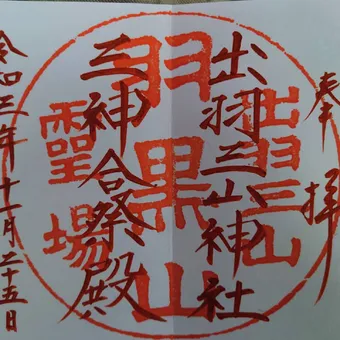 奉拝
出羽三山神社
三神合祭殿
令和三年十一月二十五日
出羽三山
羽黒山
霊場